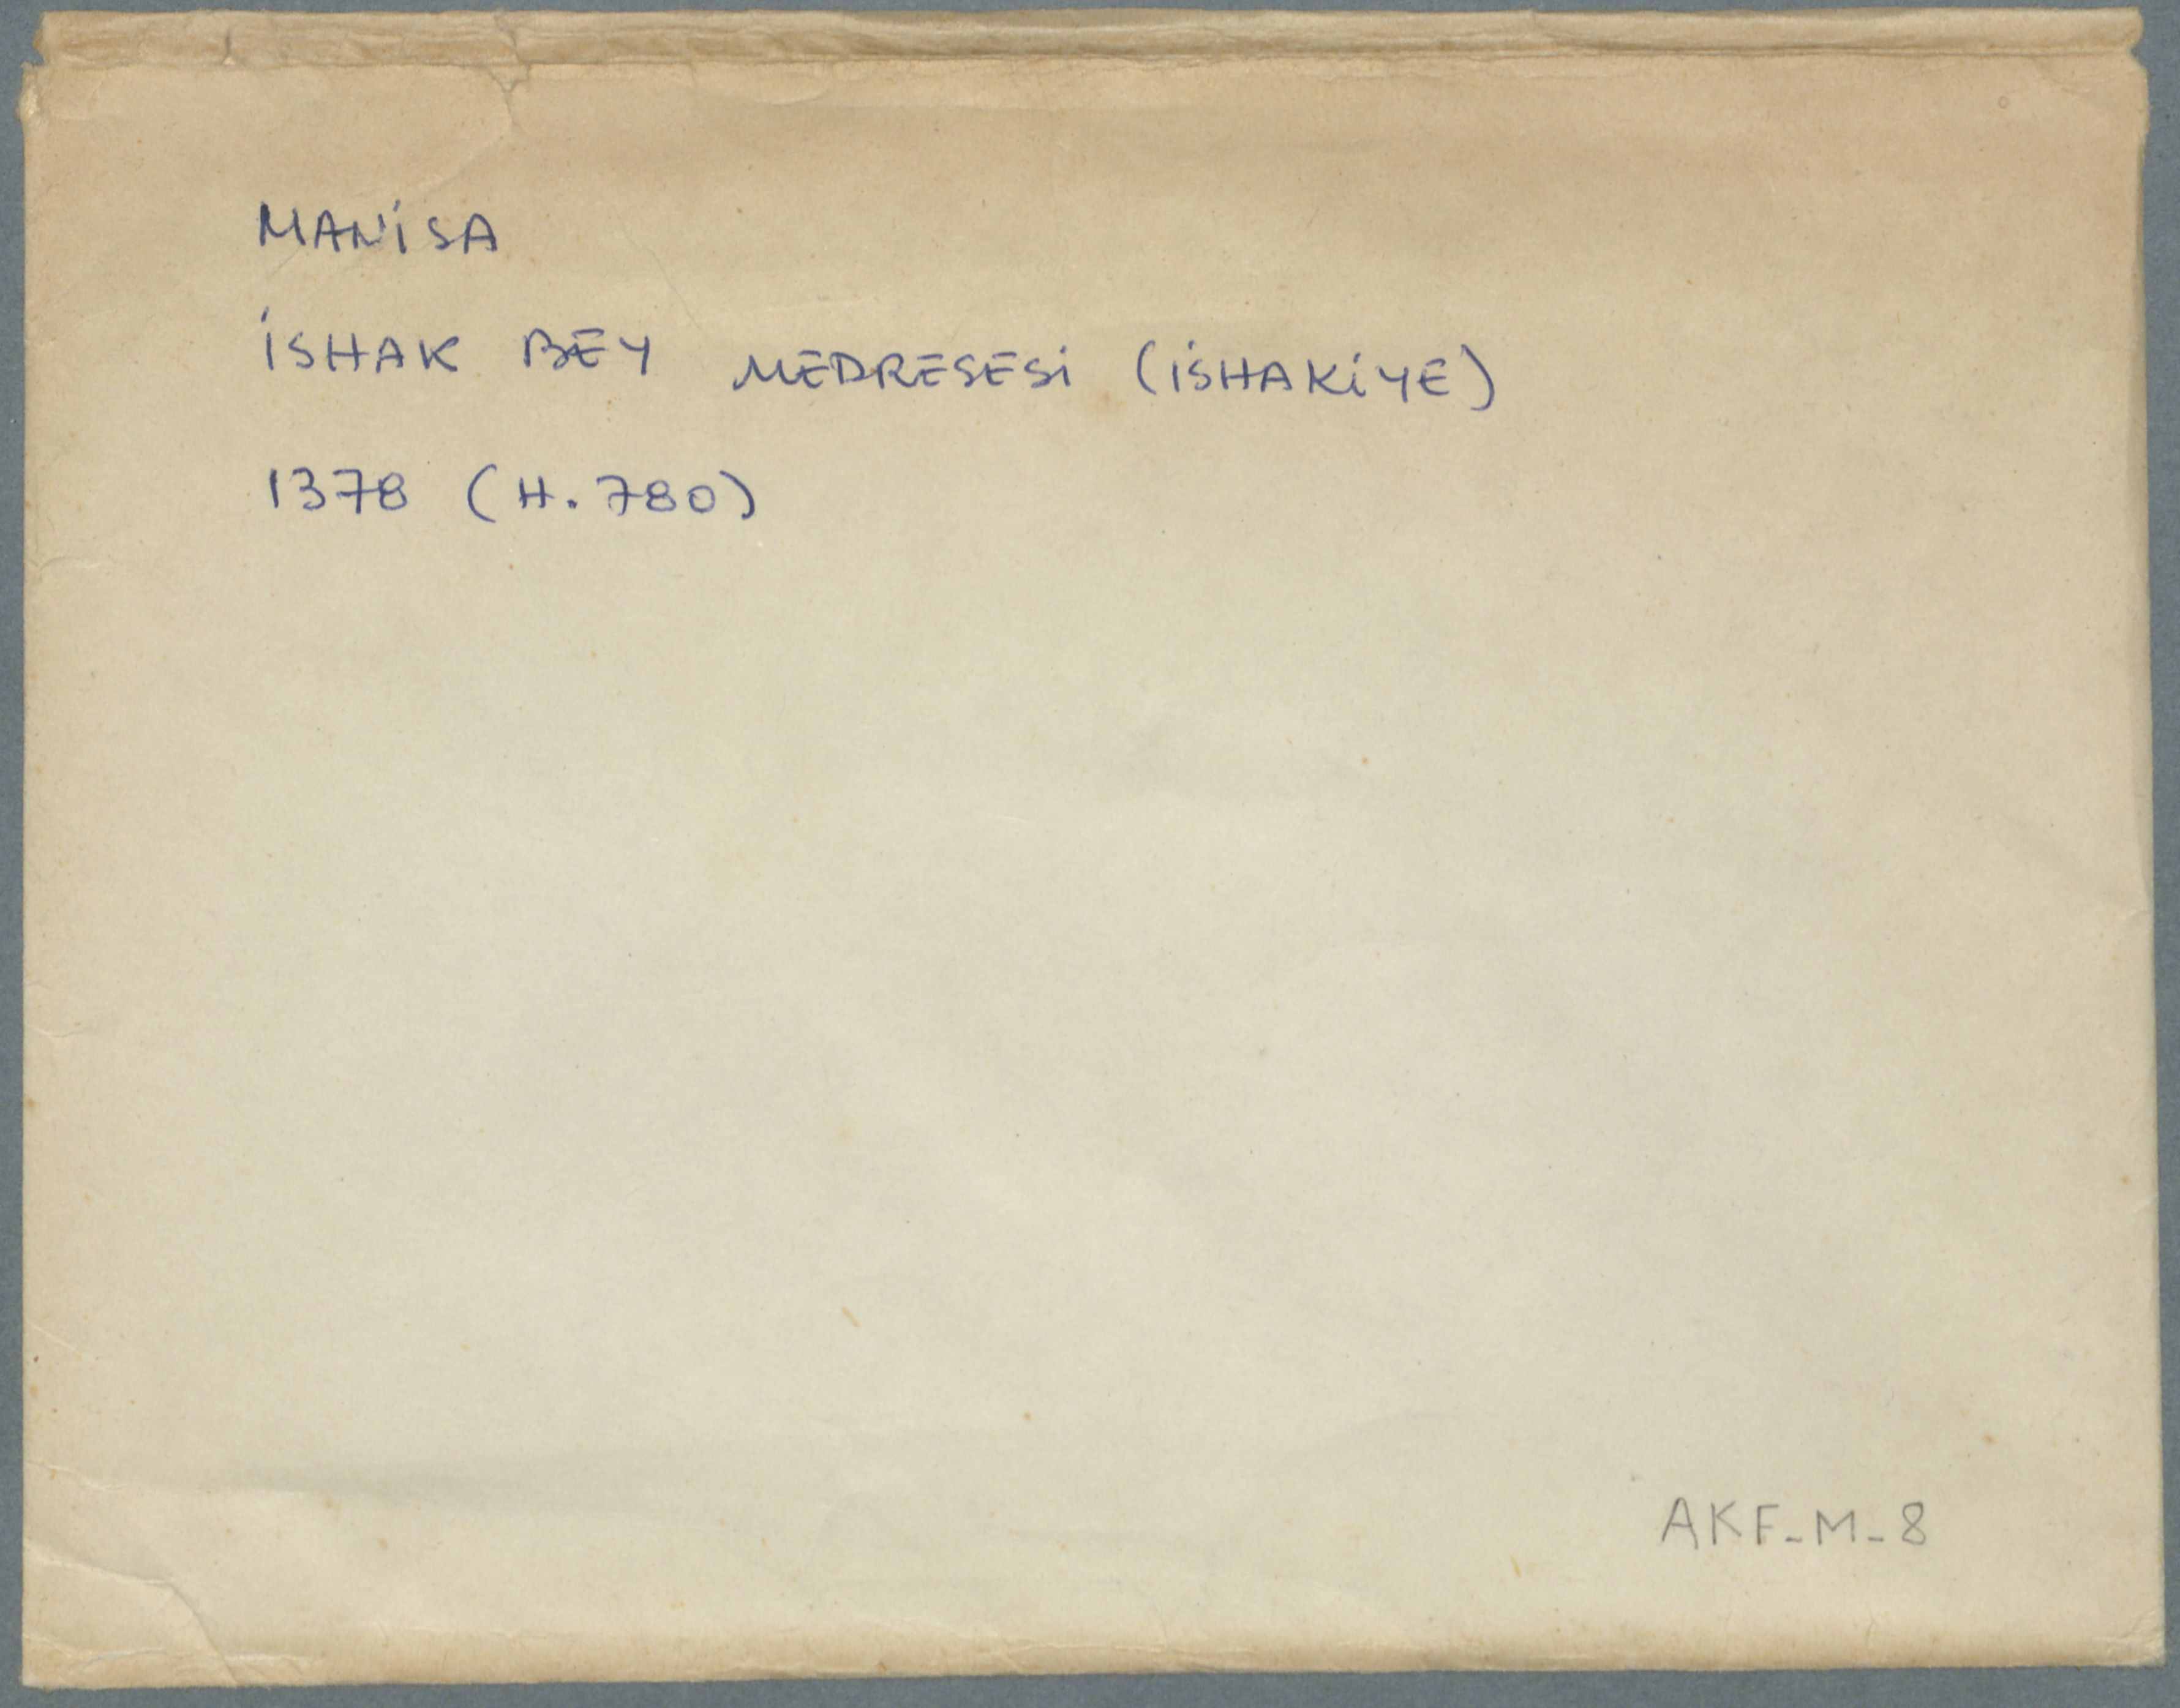 MANİSA
İSHAK BEY MEDRESESİ (İSHAKİYE)
1378 (H. 780)
AKF-M-8